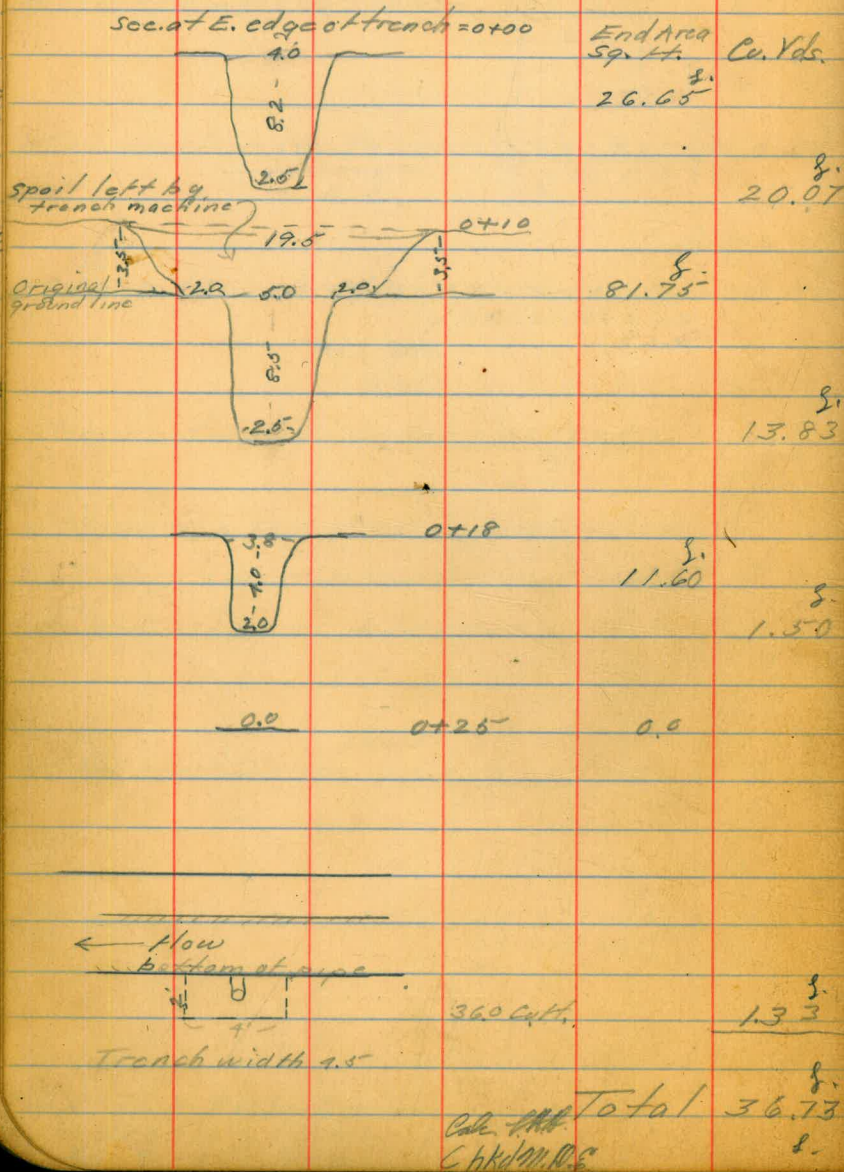 Sec. at E. edge of trench = 0+00
End Area
Sq. ft.
Cu. Yds.
4.0
8.2
26.65
2.5
20.07
spoil left by
trench machine
19.5
0+10
3.5
3.5
Original
ground line
2.0
5.0
2.0
81.75
8.5
2.5
13.83
3.8
0+18
4.0
11.60
2.0
1.50
0.0
0+25
0.0
← flow
bottom of pipe
2'
4'
36.0 Cu.ft.
1.33
Trench width 4.5
Total 36.73
Calc.
Chkd M.D.E.